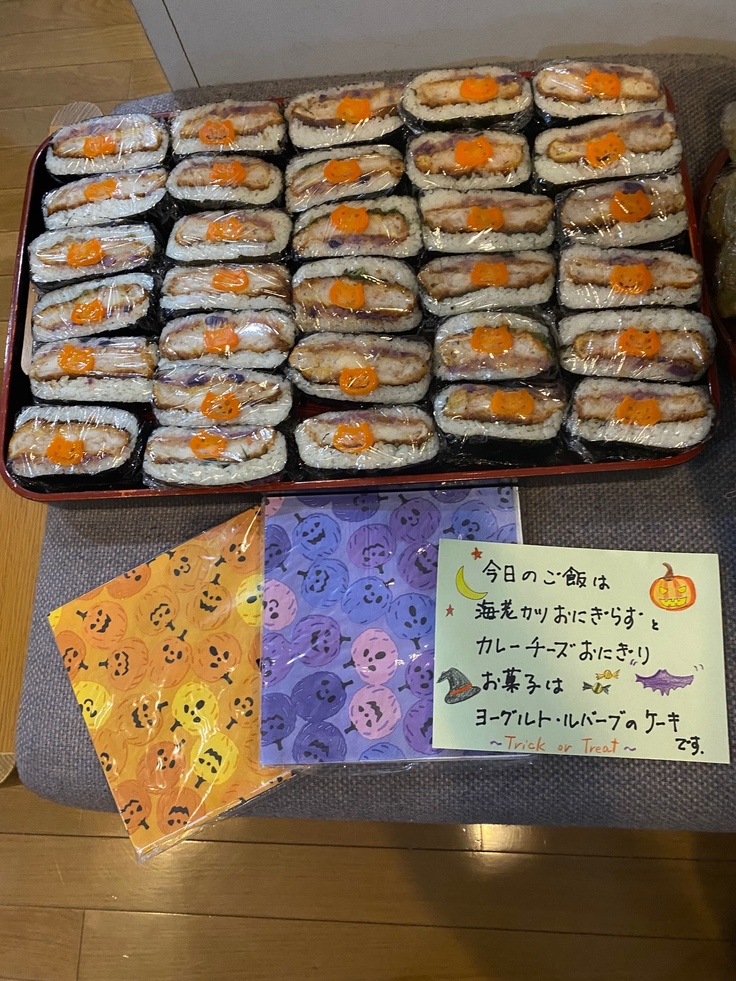 今日のご飯は
海老カツおにぎらずと
カレーチーズおにぎり
お菓子は
ヨーグルト・ルバーブのケーキ
です.
~Trick or Treat~